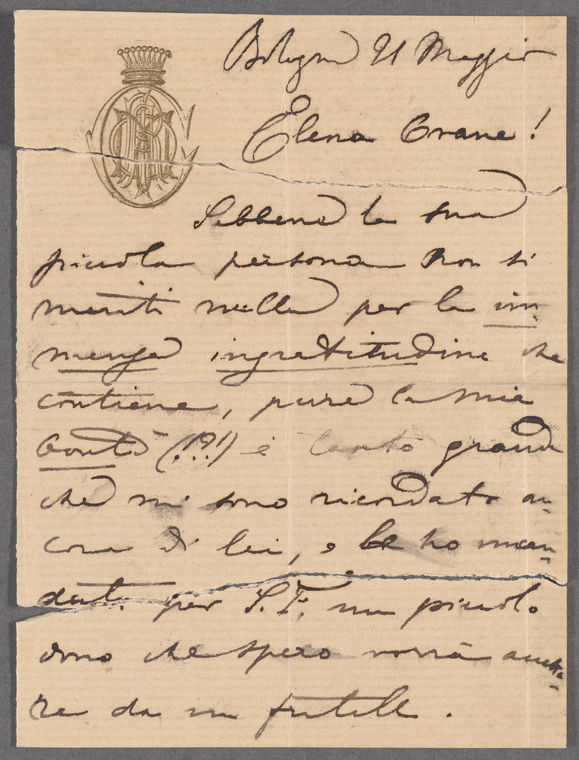 Bologna 21 Maggio
Elena Crane!
Sebbene la sua
piccola persona non si
meriti nulla per la im=
mensa ingratitudine che
contiene, pure la mia
bontà (?!) è tanto grande
che mi sono ricordato an=
cora di lei, e le ho man=
dato per S. F. un piccolo
dono che spero vorrà accetta=
re da un fratello.